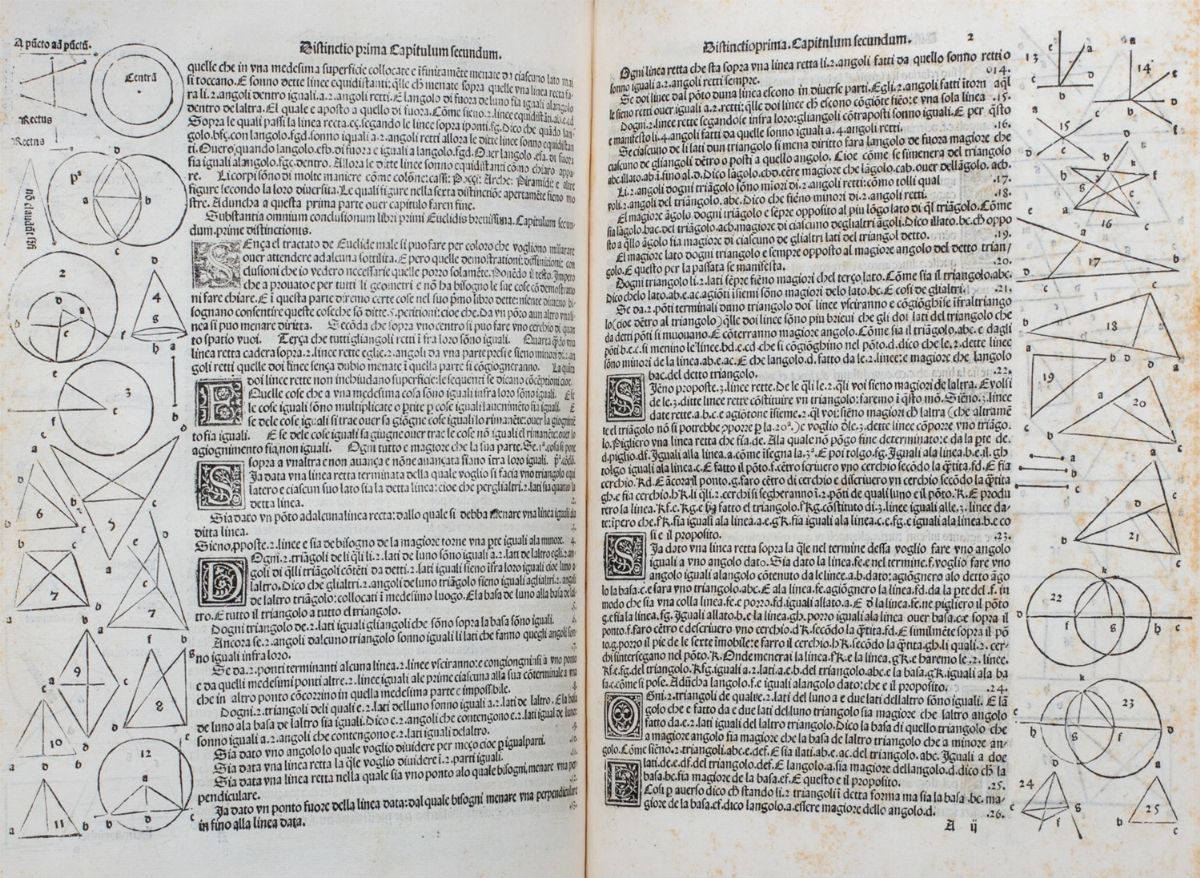 Distinctio prima Capitulum secundum.
A pūcto ad pūctū.
Centrū
Rectus
Rectina
quelle che in vna medesima superficie collocate e īfinitamēte menate da ciascuno lato mai
si toccano. E sonno dette linee equidistanti: q̄lle ch̄ menate sopra quelle vna linea retta fa
ra li .2. angoli dentro iguali a .2. angoli retti. E langolo di fuora de luno fia iguali alangolo
dentro de laltra. El quale e aposto a quello di fuora. Cōme sieno .2. linee equidistāti .ab. e .cd.
Sopra le quali passi la linea recta .eç. segando le linee sopra iponti .fg. Dico che quādo lan-
golo .bfç. con langolo .fgd. sonno iguali a .2. angoli retti allora le ditte linee sonno equidistan
ti. Ouero quando langolo .efb. di fuora e iguale a langolo .fgd. Ouer langolo .efa. di fuora
fia iguali alangolo .fgc. dentro. Allora le ditte linee sonno equidistanti cōme chiaro appa-
re. Li corpi sōno di molte maniere cōme colōne: cassi: Poççi: Arche: Piramide: e altre
figure secondo la loro diuersita. Le quali figure nella sexta distinctiōe apertamēte sieno mo
stre. Aduncha a questa prima parte ouer capitulo faren fine.
Substantia omnium conclusionum libri primi Euclidis breuissima. Capitulum secun-
dum. prime distinctionis.
SEnça el tractato de Euclide male si puo fare per coloro che vogliono misurare
ouer attendere ad alcuna sottilita. E pero quelle demostrationi: diffinitioni: e con
clusioni che io vedero necessarie quelle porro solamēte. Ponēdo il testo. Impero
che a prouato e per tutti li geometri e nō ha bisogno le sue cose cō demostratio
ni fare chiare. E ī questa parte diremo certe cose nel suo pr̄mo libro dette: niente dimeno bi-
sognano consentire queste cose che sō ditte .5. petitioni: cioe che. Da vn pōto aun altro vnali-
nea si puo menare diritta. Secōda che sopra vno centro si puo fare vno cerchio di quan
to spatio vuoi. Terça che tutti gliangoli retti ī fra loro sōno iguali. Quarta q̄n̄do vna
linea retta cadera sopra .2. linee rette e gle .2. angoli da vna parte presi e sieno minori de .2. an-
goli retti quelle doi linee sença dubio menate ī quella parte si cōgiogneranno. La quinta
doi linee rette non inchiudano superficie: le sequenti se dicano cōceptioni cioe.
EQuelle cose che a vna medesima cosa sono iguali infra loro sōno iguali. E
le cose iguali sōno multiplicate o p̄tite p̄ cose iguali lauenimēto fia iguali.
E se dele cose iguali si trae ouer sa giōgne cose iguali lo rimanēte: ouer la giognimē
to fia iguali. E se dele cose iguali sa giugne ouer trae le cose nō iguali el rimanēte: ouer lo
agiognimento fia: non iguali. Ogni tutto e magiore che la sua parte. Se .1a. cosa si pone
sopra vnaltra e non auança e nōne auançata siano īfra loro iguali.
SIa data vna linea retta terminata della quale voglio si facia vno triangolo equi
latero e ciascun suo lato sia la detta linea: cioe che per glialtri .2. lati sia quanto la
detta linea.
Sia dato vn pōto ad alcuna linea recta: dallo quale si debba menare vna linea iguali da
ditta linea.
Sieno, pposte .2. linee e sia de bisogno de la magiore torne vna pte iguali ala minore.
OGni .2. triāgoli de li q̄li li .2. lati de luno sōno iguali a .2. lati de laltro e gli .2. an-
goli di q̄lli triāgoli cōtēti da detti .2. lati sieno iguali īfra loro iguali cioe luno a
laltro. Dico che glialtri .2. angoli de luno triāgolo sieno iguali agli altri .2. angoli
de laltro triāgolo: collocati ī medesimo luogo. E la basa de luno alla basa de lal-
tro. E tutto il triangolo a tutto el triangolo.
Dogni triangolo de .2. lati iguali gliangoli che sōno sopra la basa sōno iguali.
Ancora se .2. angoli dalcuno triangolo sonno iguali li lati che fanno quegli angoli son-
no iguali infra loro.
Se da .2. ponti terminanti alcuna linea .2. linee vsciranno: e congiongnsi a vno ponto
e da quelli medesimi ponti altre .2. linee iguali ale prime ciascuna alla sua cōterminale ma
che in altro ponto cōcorrino in quella medesima parte e impossibile.
Dogni .2. triangoli deli quali e .2. lati delluno sonno iguali a .2. lati de laltro. E la basa
de luno ala basa de laltro sia iguali. Dico e .2. angoli che contengono e .2. lati igual de luno
sonno iguali a .2. angoli che contengono e .2. lati iguali delaltro.
Sia dato vno angolo lo quale voglio diuidere per meço cioe p̄ igual parti.
Sia data vna linea retta la q̄le voglio diuidere ī .2. parti iguali.
Sia data vna linea retta nella quale sia vno ponto alo quale bisogni, menare vna per
pendiculare.
Ia dato vn ponto fuore della linea data: dal quale bisogni menare vna perpendiculare
in fino alla linea data.
Distinctio prima. Capitulum secundum. 2
Ogni linea retta che sta sopra vna linea retta li .2. angoli fatti da quello sonno retti o
sonno iguali a .2. angoli retti sempre. .14.
Se doi linee dal pōto duna linea escono in diuerse parti. E gli .2. angoli fatti itorn aq̄l
le sieno retti ouer iguali a .2. retti: q̄lle doi linee ch̄ escono cōgiōte fiēo: e vna sola linea .15.
Dogni .2. linee segandose infra loro: gliangoli cōtraposti sonno iguali. E per q̄sto
e manifesto li .4. angoli fatti da quelle sonno iguali a .4. angoli retti. .16.
Se ciascuno de li lati dun triangolo si mena diritto fara langolo de fuora magiore che
ciascuno de gliangoli dētro o posti a quello angolo. Cioe cōme se simenera del triangolo
abc. illato .ab. ī fino al .d. Dico lāgolo .cbd. eēre magiore che lāgolo .cab. ouer dellāgolo .acb.
Li .2. angoli dogni triāgolo sōno miori di .2. angoli retti: cōme tolli qual .17.
angoli del triangolo .abc. Dico che fiēno minori di .2. angoli retti. .18.
El magiore āgolo dogni triāgolo e sēpre opposito al piu lōgo lato di q̄l triāgolo. Cōme
lāgolo .bac. del triāgolo .acb. magiore di ciascuno deglialtri āgoli. Dico illato .bc. ch̄ oppo
sto a q̄llo āgolo fia magiore di ciascuno de glialtri lati del triangol detto. .19.
El magiore lato dogni triangolo e sempre opposito al magiore angolo del detto trian-
golo. E questo per la passata se manifesta. .20.
Dogni triangolo li .2. lati sēpre fiēno magiori chel terço lato. Cōme sia il triāgolo .abc.
Dico chelo lato .ab. e .ac. agiōti isiemi sōno magiori delo lato .bc. E cosi de gli altri. .21.
Se da .2. pōti terminali duno triāgolo doi linee vsciranno e cōgiōghise īfral triango
lo (cioe dētro al triangolo) q̄lle doi linee sōno piu brieui che gli doi lati del triangolo che
da detti pōti si muouano. E cōterranno magiore angolo. Cōme sia il triāgolo .abc. e dagli
pōti .b. e .c. si menino le linee .bd. e .cd. che si cōgiōghino nel pōto .d. dico che le .2. dette linee
sōno minori de la linea .ab. e .ac. E che langolo .d. fatto da le .2. linee: e magiore che langolo
bac. del detto triangolo. .22.
SIēno proposte .3. linee rette. De le q̄li le .2. q̄li voi sieno magiori de laltra. E vosi
de le .3. ditte linee rette cōstituire vn triangolo: faremo ī q̄sto mō. Siēno .3. linee
date rette .a. b. c. e agiōtone īsieme .2. q̄l voi: siēno magiori ch̄ laltra (che altramē
te el triāgolo nō si potrebbe pporre p̄ la .20a. De voglio dle .3. dette linee cōporre vno triāgo
lo. Pigliero vna linea retta che sia .de. Ala quale nō pōgo fine determinato: da la pte de
d. piglio .df. Iguali alla linea .a. cōme īsegna la .3a. E poi tolgo .fg. Iguali ala linea .b. e il .gh
tolgo iguali ala linea .c. E fatto il pōto .f. cētro scriuero vno cerchio secōdo la q̄tita .fd. E sia
cerchio .kd. E ācora il ponto .g. faro cētro di cerchio e discriuero vn cerchio secōdo la q̄tita
gh. e sia cerchio .hk. li q̄li .2. cerchi si segheranno ī .2. pōti de quali luno e il pōto .K. E produ
rro la linea .Kf. e .Kg. e hō fatto el triangolo .fKg. cōstituto di .3. linee iguali alle .3. linee da-
te: ipero che .fK. sia iguali ala linea .a. e .gK. sia iguali ala linea .c. e .fg. e iguali ala linea .b. e co
si e il proposito. .23.
SIa dato vna linea retta sopra la q̄le nel termine dessa voglio fare vno angolo
iguali a vno angolo dato. Sia dato la linea .fe. e nel termine .f. voglio fare vno
angolo iguali alangolo cōtenuto da le linee .a. b. dato: agiōgnero alo detto āgo
lo la basa .c. e sara vno triangolo .abc. E ala linea .fe. agiognero la linea .fd. da la pte del .f. in
modo che sia vna colla linea .fe. e porro .fd. iguali allato .a. E dala linea .fe. ne pigliero il pōto
g. e sia la linea .fg. Iguali allato .b. e la linea .gh. porro iguali ala linea ouer basa .c. e sopra il
ponto .f. faro cētro e descriuero vno cerchio .dK. secōdo la q̄tita .fd. E similmēte sopra il pō
to .g. porro il pie de le sexte īmobile: e farro il cerchio .hK. secōdo la q̄tita .gh. li quali .2. cer-
chi sintersegano nel pōto .K. Onde menerai la linea .fK. e la linea .gK. e haremo le .2. linee.
Kf. e .fg. del triangolo .Kfg. iguali a .2. lati .a. e .b. del triangolo .abc. E la basa .gK. iguali ala ba
sa .c. cōme si pose. Adūcha langolo .f. e iguali alangolo dato: che e il proposito. .24.
OGni .2. triangoli de quali e .2. lati del luno a e due lati dellaltro sōno iguali. E lā
golo che fatto da e due lati del luno triangolo sia magiore che laltro angolo
fatto da .e .2. lati iguali del laltro triangolo. Dico la basa di quello triangolo che
a magiore angolo fia magiore che la basa de laltro triangolo che a minore an-
golo. Cōme siēno .2. triangoli .abc. e .def. E sia ilati .ab. e .ac. del triangolo .abc. Iguali a doe
lati .de. e .df. del triangolo .def. E langolo .a. sia magiore dellangolo .d. dico ch̄ la
basa .bc. fia magiore de la basa .ef. E questo e il proposito. .25.
ECosi p̄ auerso dico ch̄ stando li .2. triangoli ī detta forma ma sia la basa .bc. ma-
giore de la basa .ef. dico langolo .a. essere magiore dello angolo .d. .26.
A ij